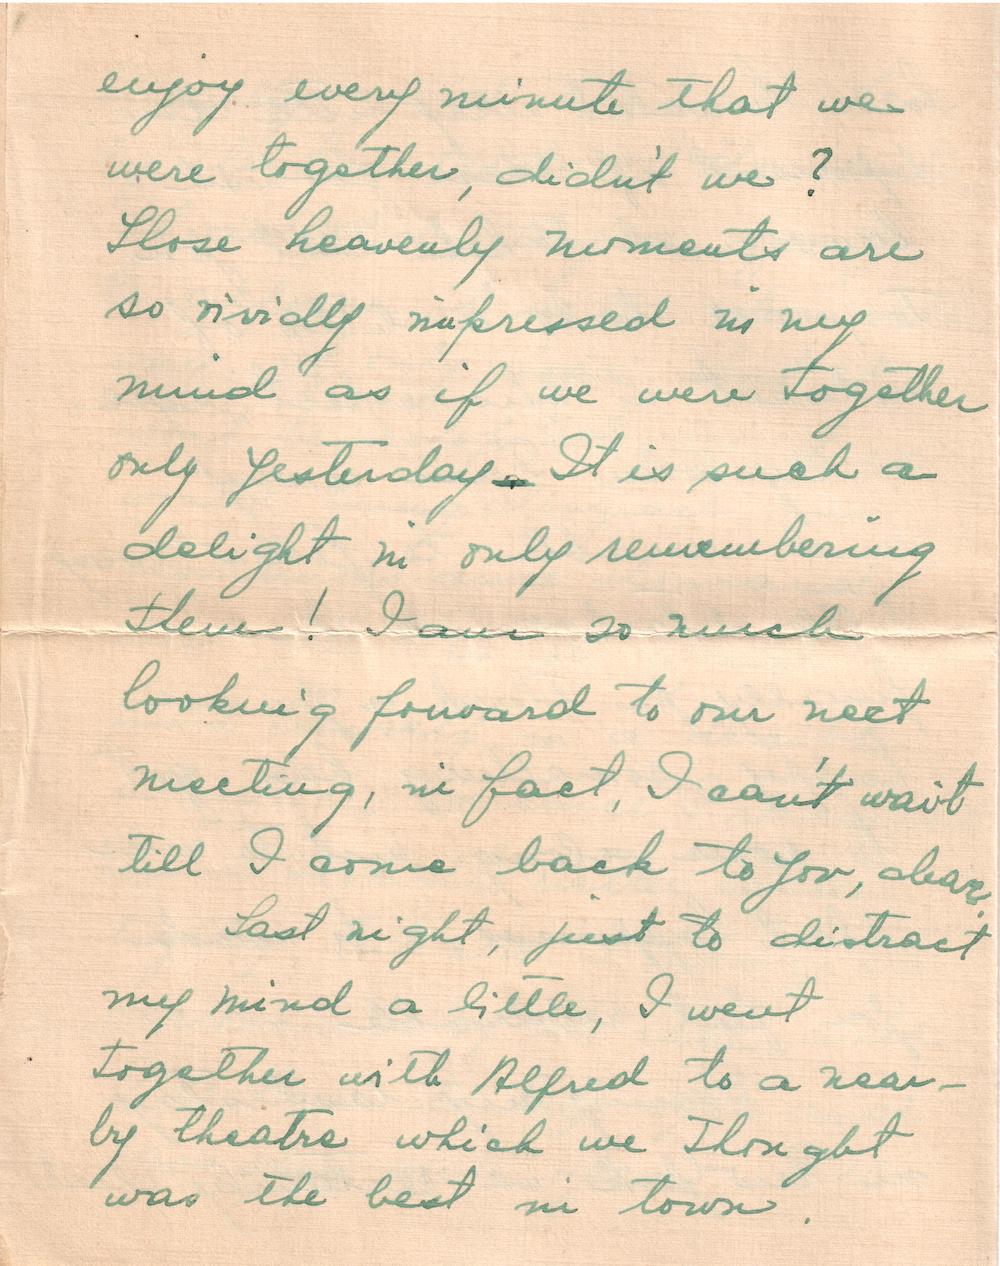 enjoy every minute that we
were together, didn't we ?
Those heavenly moments are
so vividly impressed in my
mind as if we were together
only yesterday. It is such a
delight in only remembering
them ! I am so much
looking forward to our next
meeting, in fact, I can't wait
till I come back to you, dear.
Last night, just to distract
my mind a little, I went
together with Alfred to a near-
by theatre which we thought
was the best in town.